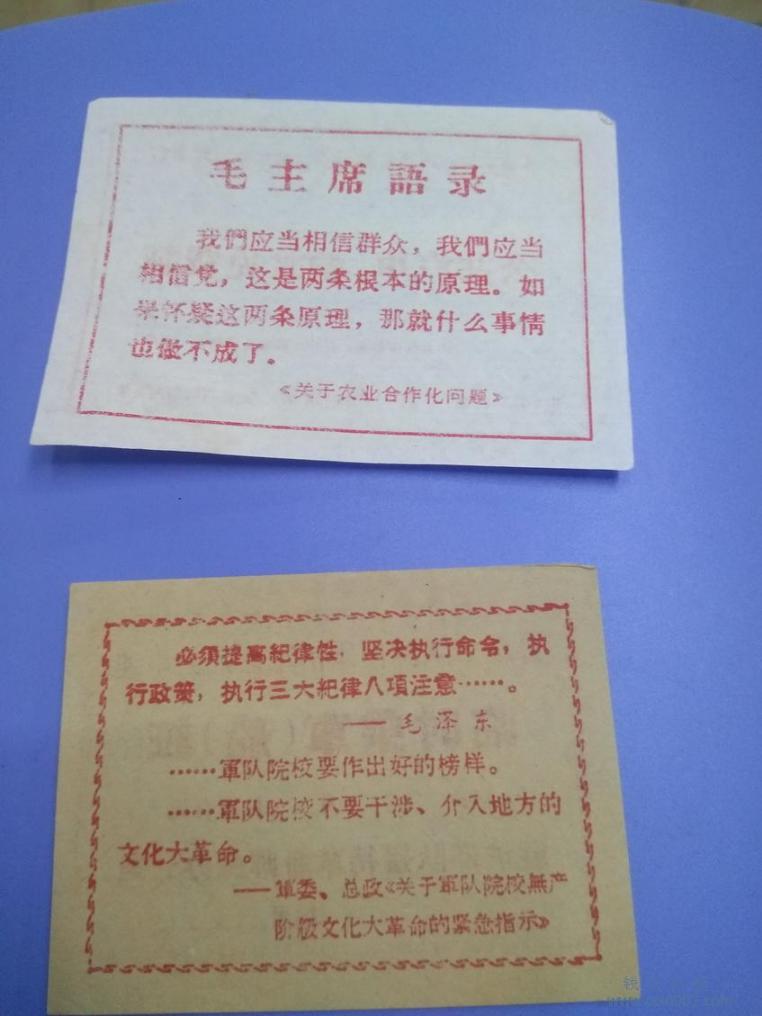 毛主席語录
我們应当相信群众，我們应当
相信党，这是两条根本的原理。如
果怀疑这两条原理，那就什么事情
也做不成了。
《关于农业合作化问题》
必须提高紀律性，坚决执行命令，执
行政策，执行三大紀律八項注意……。
——毛泽东
……軍队院校要作出好的榜样。
……軍队院校不要干涉、介入地方的
文化大革命。
——軍委、总政《关于軍队院校無产
阶级文化大革命的紧急指示》